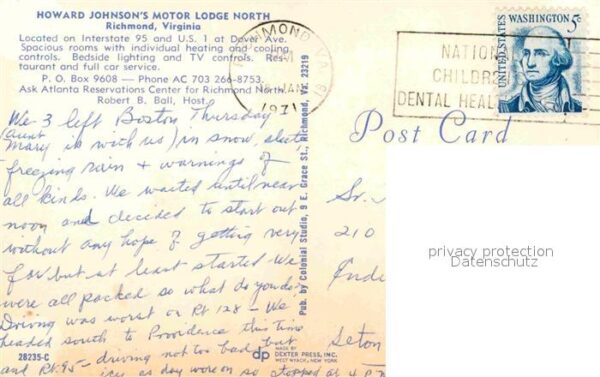 HOWARD JOHNSON'S MOTOR LODGE NORTH
Richmond, Virginia
Located on Interstate 95 and U.S. 1 at Dover Ave.
Spacious rooms with individual heating and cooling
controls. Bedside lighting and TV controls. Res-
taurant and full car service.
P. O. Box 9608 — Phone AC 703 266-8753.
Ask Atlanta Reservations Center for Richmond North.
Robert B. Ball, Host
We 3 left Boston Thursday
(Aunt
Mary is with us) in snow, sleet,
freezing rain + warnings of
all kinds. We waited until near
noon and decided to start out
without any hope of getting very
far but at least started. We
were all packed so what do you do?
Driving was worst on Rt 128 - We
headed south to Providence this time
and Rt. 95 - driving not too bad but
icy as day wore on so stopped at 4 P.M.
28235-C
Pub. by Colonial Studio, 9 E. Grace St., Richmond, Va. 23219
dp
MADE BY
DEXTER PRESS, INC.
WEST NYACK, NEW YORK
RICHMOND, VA
JAN
1971
NATION
CHILDRE
DENTAL HEAL
UNITED STATES
WASHINGTON 5c
Post Card
Sr.
210
Inde
Seton
privacy protection
Datenschutz